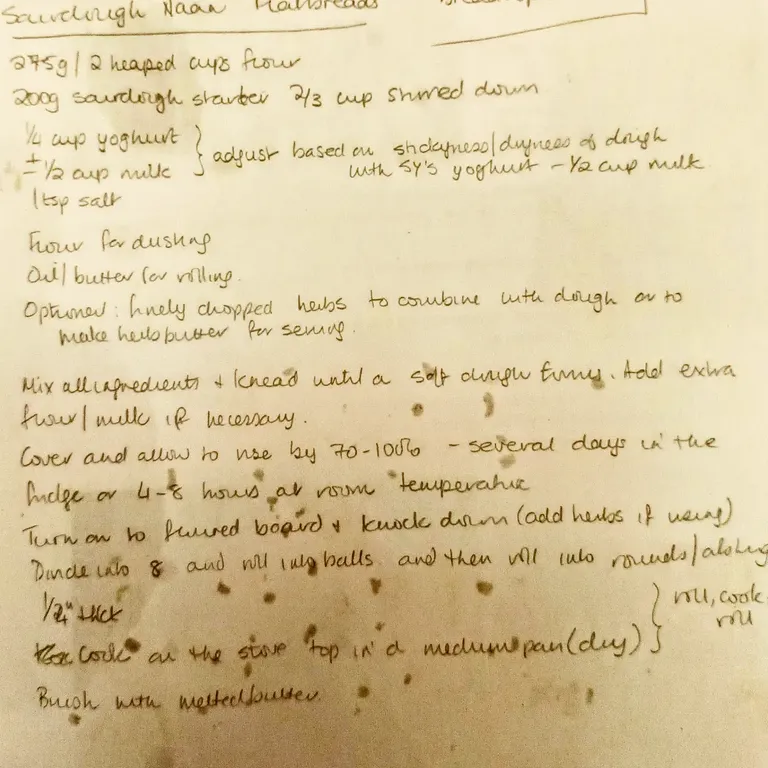 Sourdough Naan Flatbreads
275g / 2 heaped cups flour
200g sourdough starter 2/3 cup stirred down
1/4 cup yoghurt
± 1/2 cup milk } adjust based on stickyness/dryness of dough
with 5Y's yoghurt - 1/2 cup milk
1 tsp salt
Flour for dusting
Oil / butter for rolling.
Optional: finely chopped herbs to combine with dough or to
make herb butter for serving.
Mix all ingredients + knead until a soft dough forms. Add extra
flour / milk if necessary.
Cover and allow to rise by 70-100% - several days in the
fridge or 4-8 hours at room temperature
Turn on to floured board + knock down (add herbs if using)
Divide into 8 and roll into balls and then roll into rounds /
1/4" thick
Cook on the stove top in a medium pan (dry) } roll, cook
roll
Brush with melted butter.